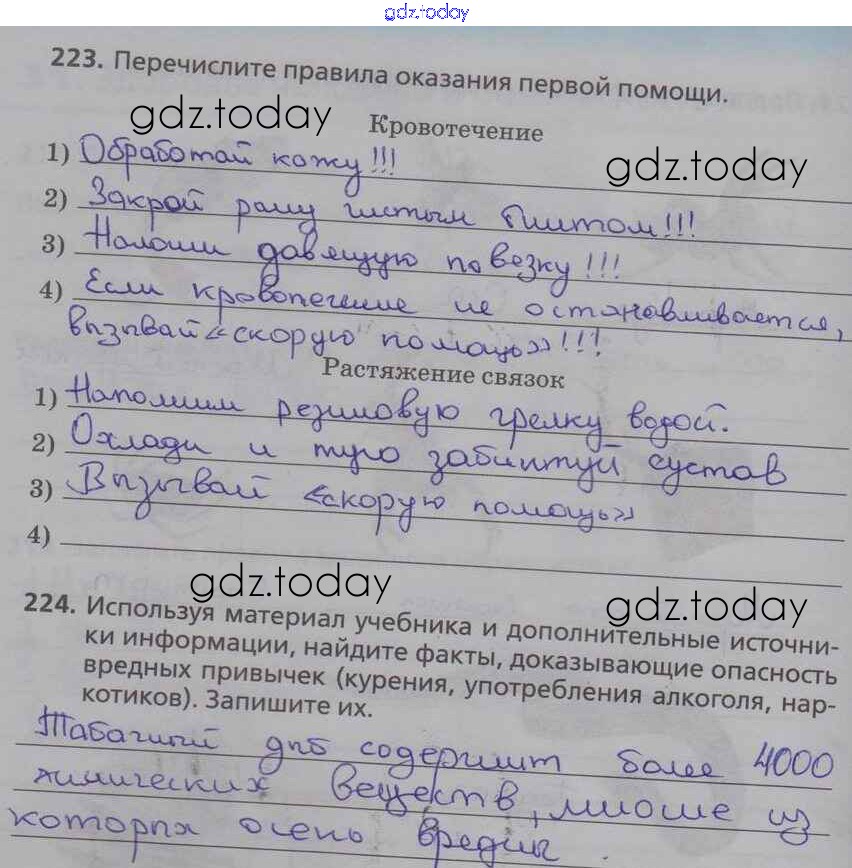 gdz.today
223. Перечислите правила оказания первой помощи.
gdz.today
Кровотечение
gdz.today
1) Обработай кожу!!!
2) Закрой рану чистым бинтом!!!
3) Наложи давящую повезку!!!
4) Если кровотечение не останавливается,
вызывай «скорую помощь»!!!
Растяжение связок
1) Наполним резиновую грелку водой.
2) Охлади и туго забинтуй сустав
3) Вызывай «скорую помощь»
4)
gdz.today
gdz.today
224. Используя материал учебника и дополнительные источни-
ки информации, найдите факты, доказывающие опасность
вредных привычек (курения, употребления алкоголя, нар-
котиков). Запишите их.
Табачный дым содержит более 4000
химических веществ, многие из
которых очень вредны.